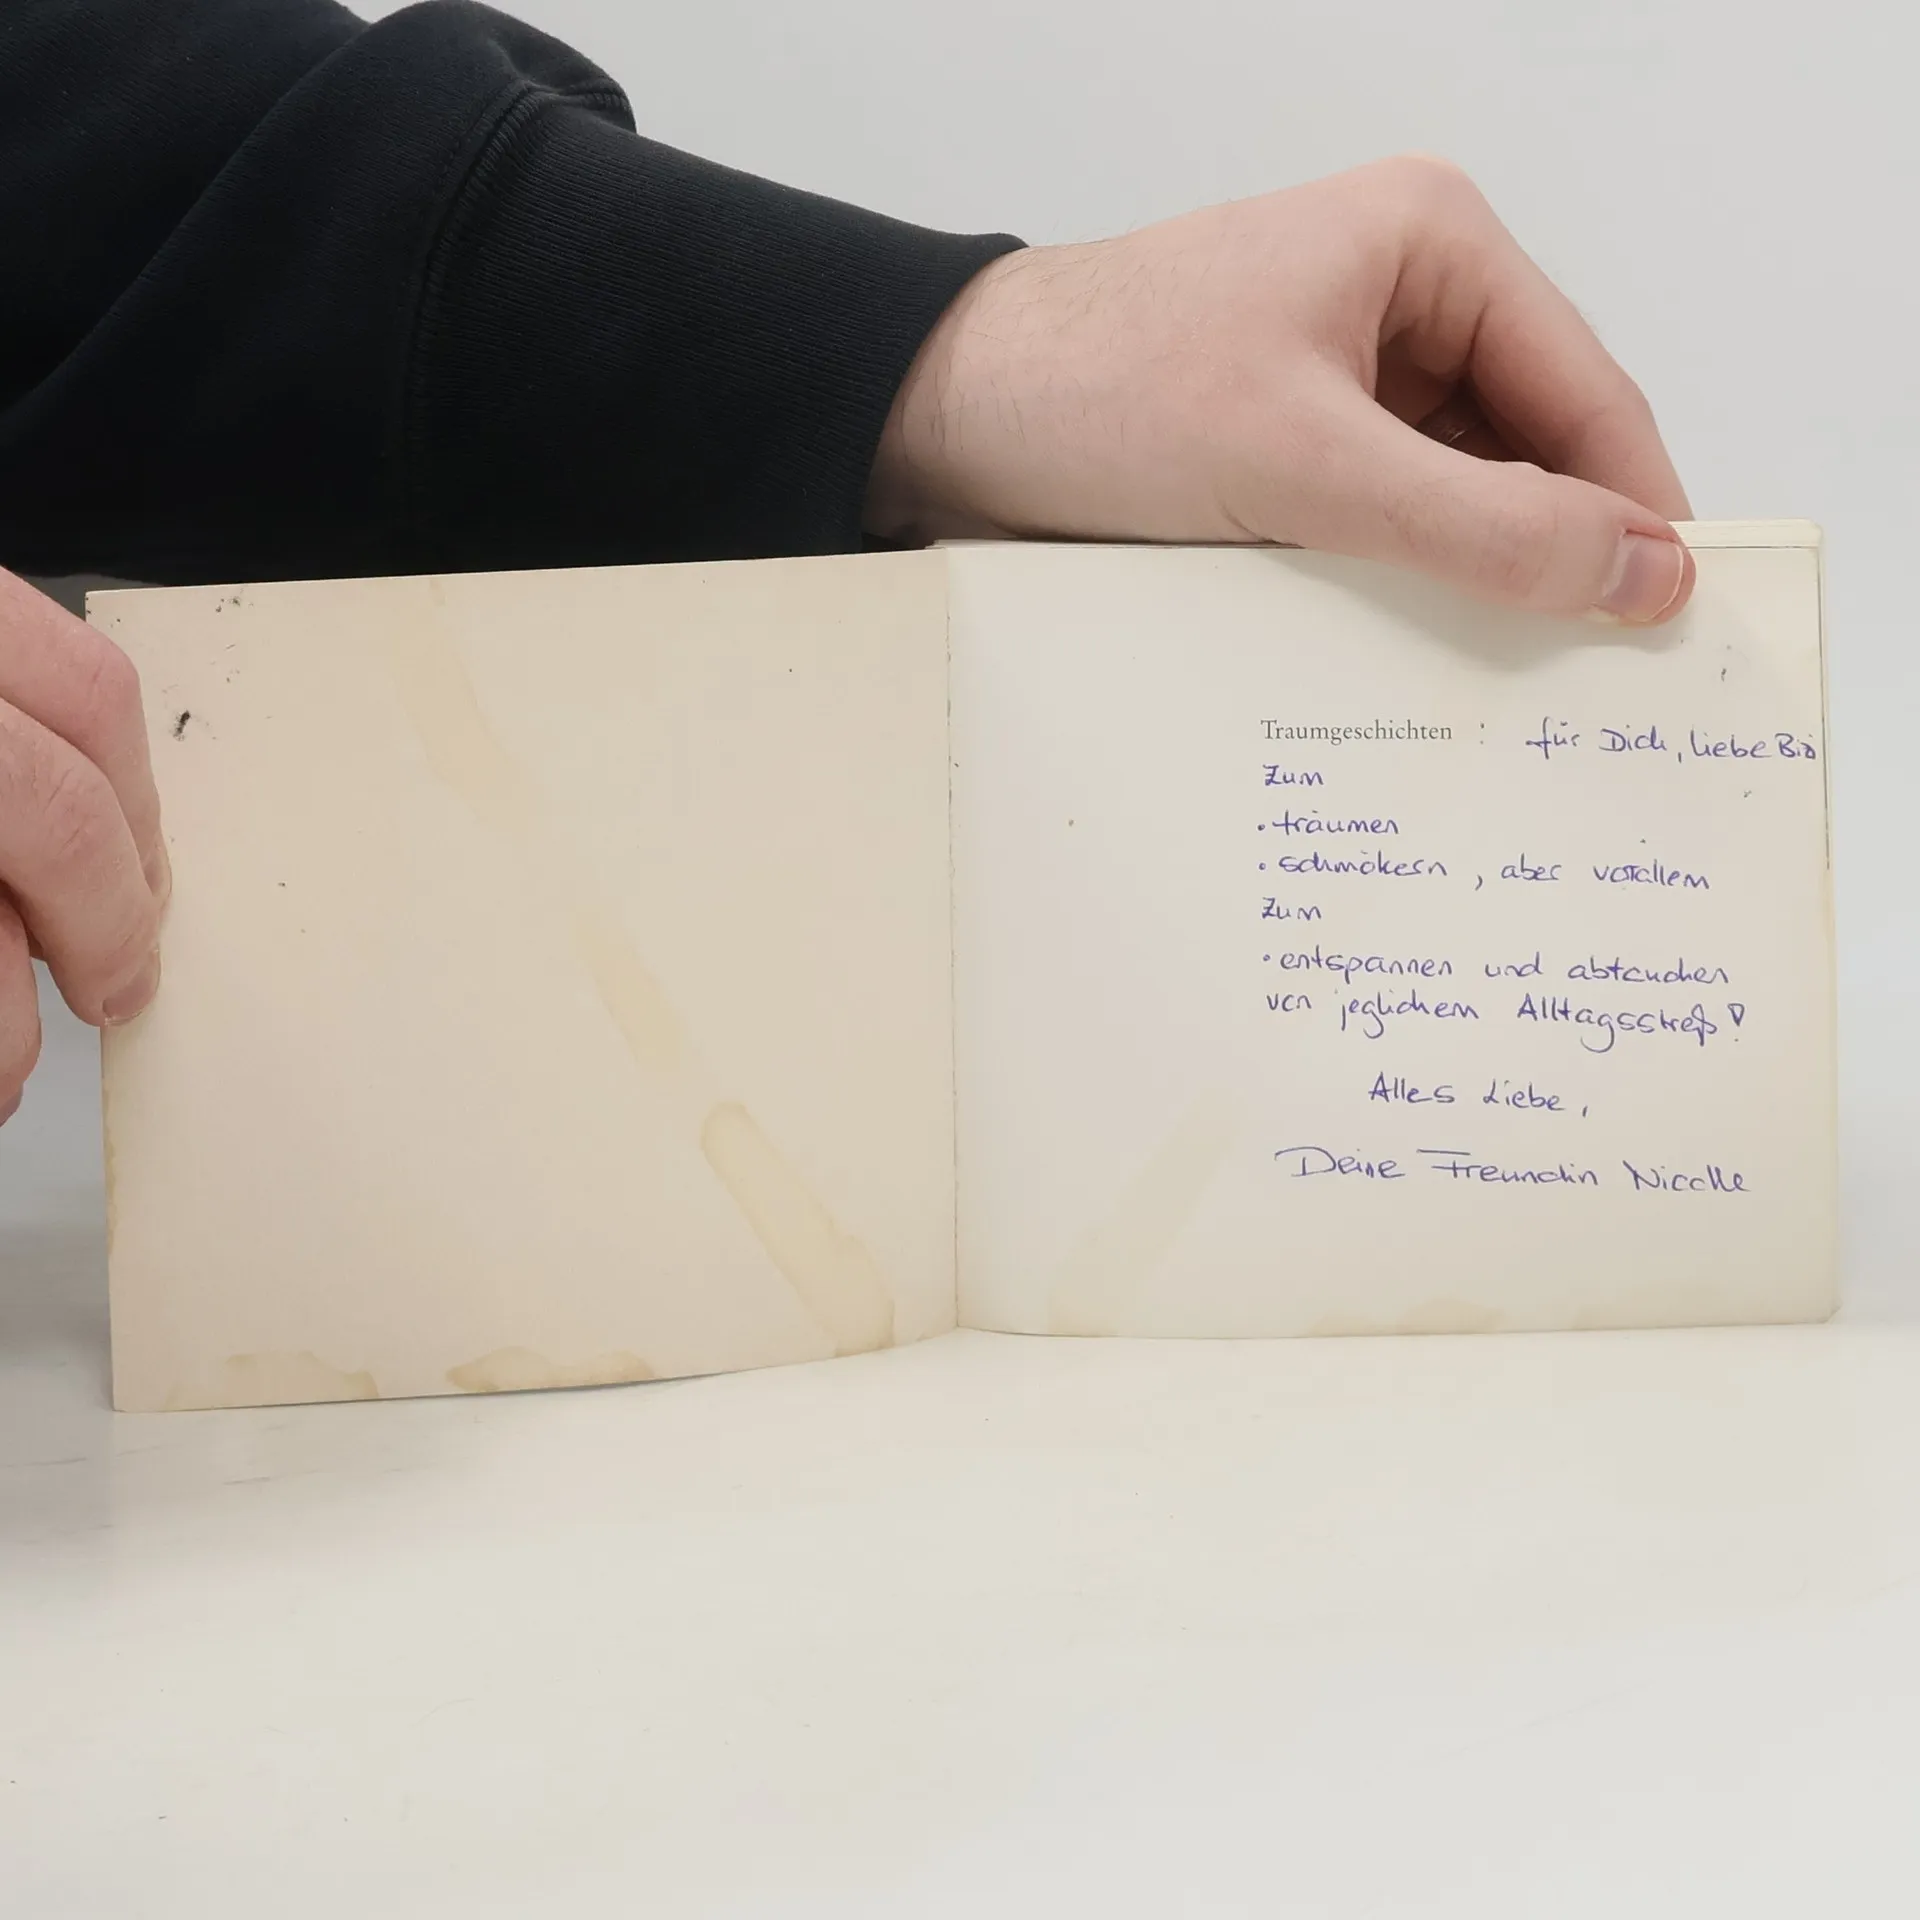 Traumgeschichten : für Dich, liebe
Zum
• träumen
• schmökern, aber vorallem
Zum
• entspannen und abtauchen
von jeglichem Alltagsstreß!
Alles Liebe,
Deine Freundin Nicolle